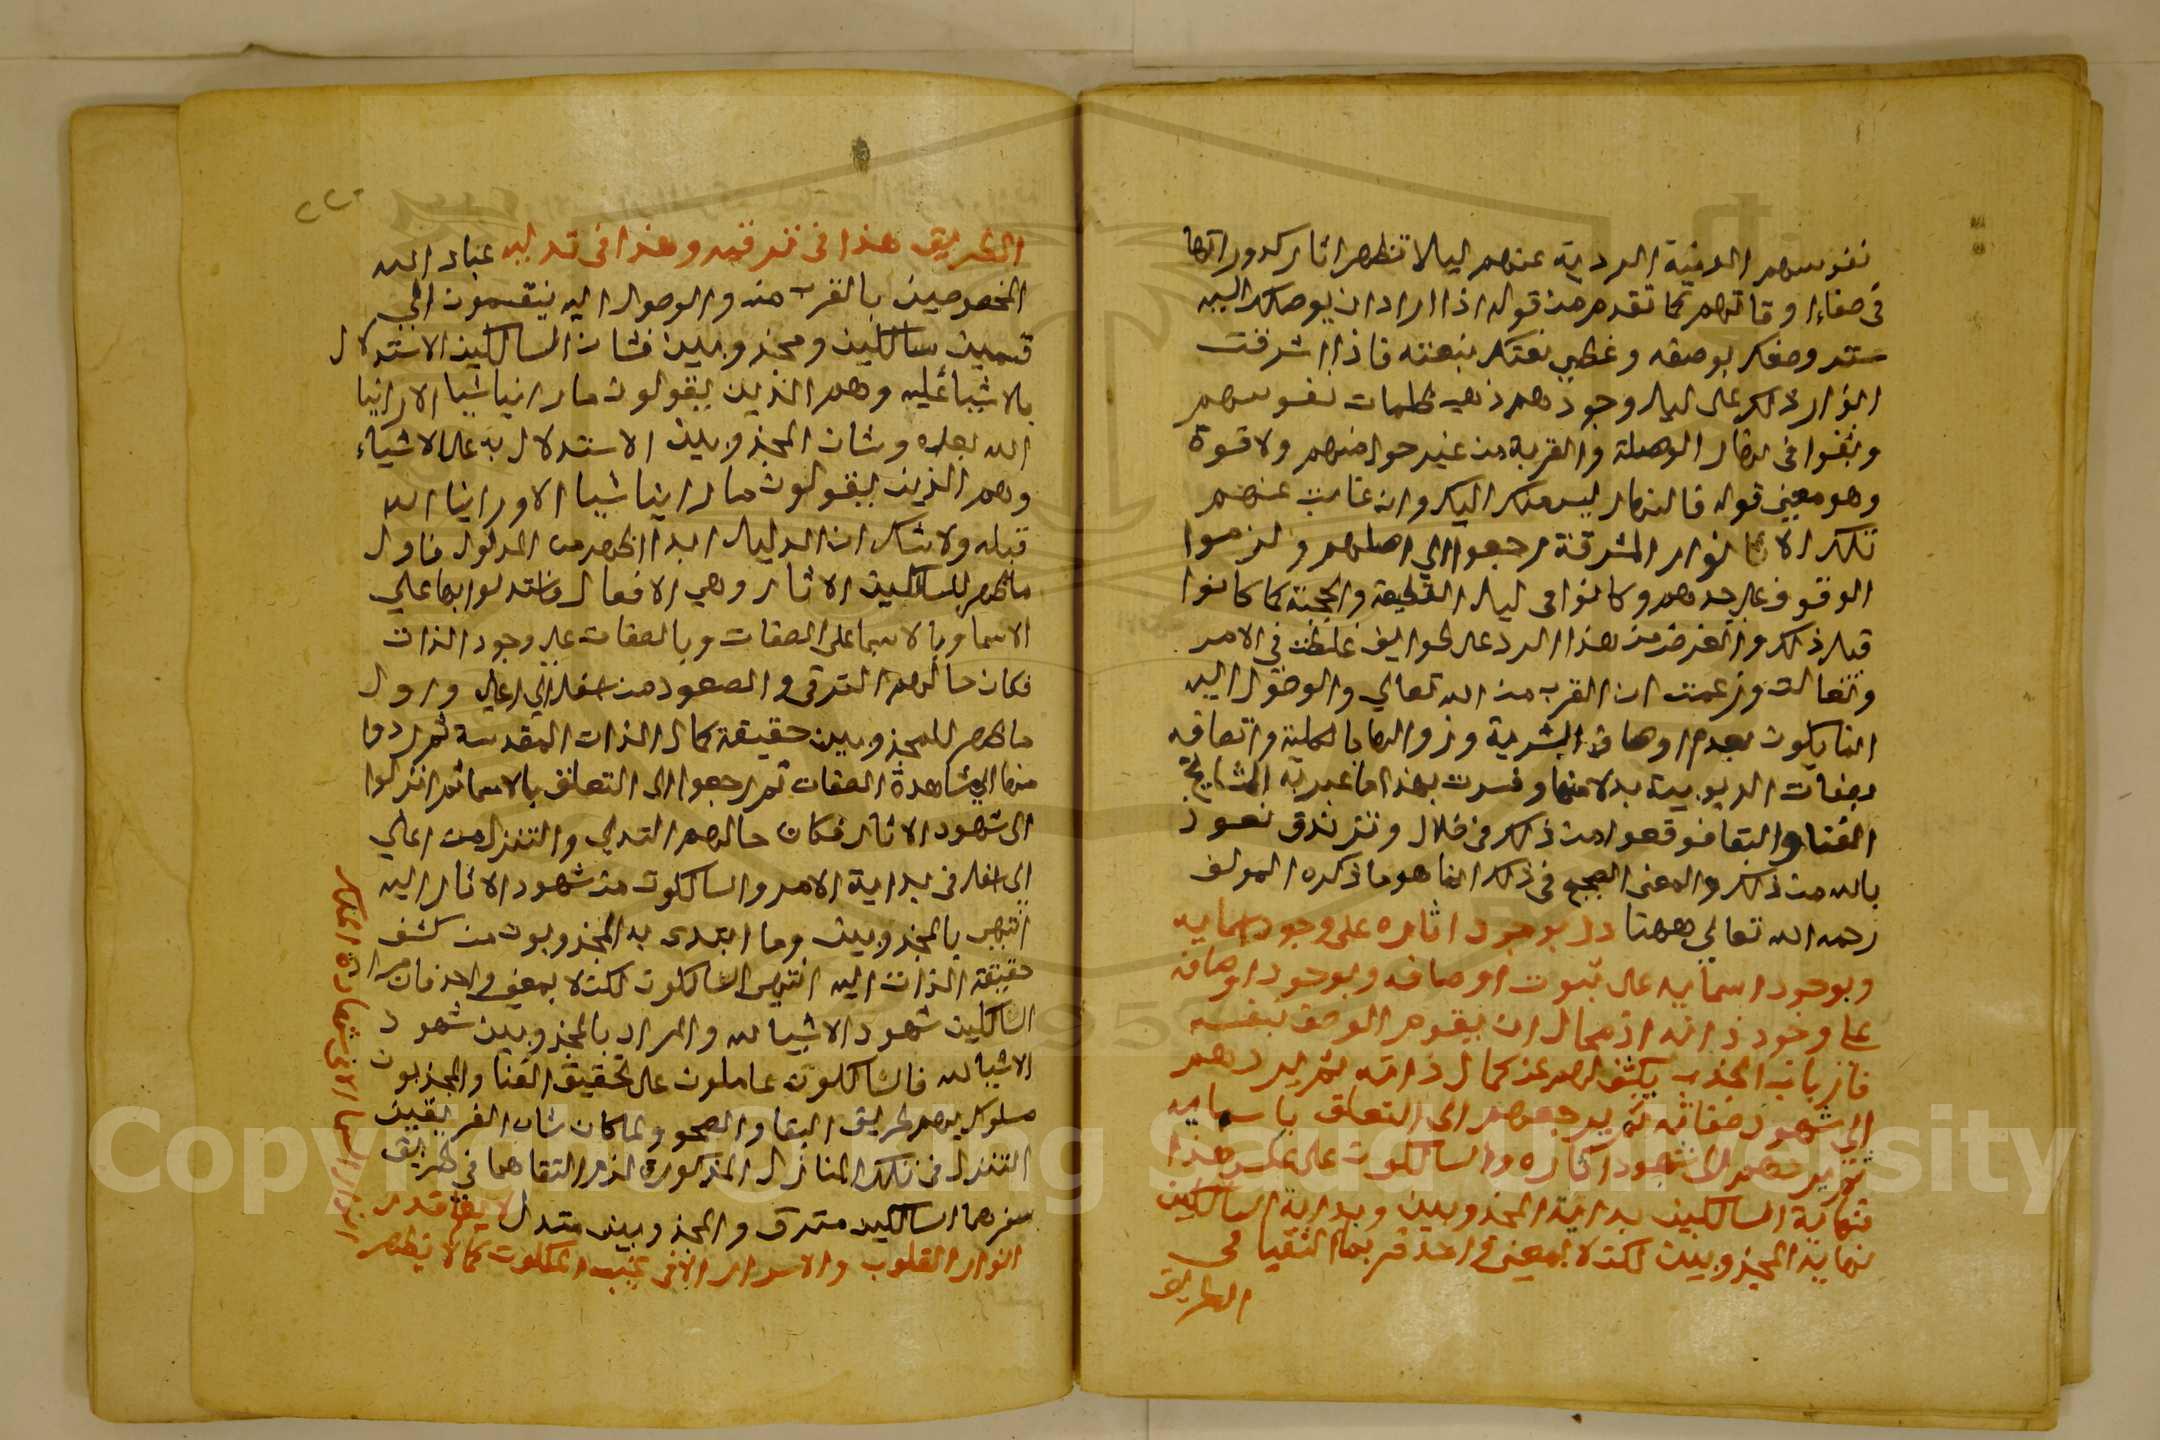 نفوسهم الدنية الردية عنهم ليلا تظهر اثار كدوراتها
في صفاء اوقاتهم كما تقدم من قوله اذا اراد ان يوصلك اليه
ستر وصفك بوصفه وغطي نعتك بنعته فاذا اشرقت
انوار ذلك على ليل وجودهم ذهب ظلمات نفوسهم
وبقوا في نهار الوصلة والقربة من غير حول منهم ولا قوة
وهو معني قوله فالنهار ليس منك اليك وان غابت عنهم
تلك الانوار المشرقة رجعوا الي اصلهم ولزموا
الوقوف على حدهم وكانوا في ليل القطيعة والحجبة كما كانوا
قبل ذلك والغرض من هذا الرد على طوايف غلطت في الامر
وتغالت وزعمت ان القرب من الله تعالي والوصول اليه
انما يكون بعدم اوصاف البشرية وزوالها بالكلية واتصافه
بصفات الربوبية بدلا منها وفسرت بهذا ما عبر به المشايخ
الفنا والبقا فوقعوا من ذلك في ضلال وتزندق نعوذ
بالله من ذلك والمعني الصحيح في ذلك انما هو ما ذكره المولف
رحمه الله تعالي ههنا دل بوجود اثاره على وجود اسمايه
وبوجود اسمايه على ثبوت اوصافه وبوجود اوصافه
علي وجود ذاته اذ محال ان يقوم الوصف بنفسه
فارباب الجذب يكشف لهم عن كمال ذاته ثم يردهم
الي شهود صفاته ثم يرجعهم الى التعلق باسمايه
ثم يردهم الى شهود اثاره والسالكون على عكس هذا
فنهاية السالكين بداية المجذوبين وبداية السالكين
نهاية المجذوبين لكن لا بمعني واحد فربما التقيا في
الطريق
٢٢٠
الطريق هذا في ترقيه وهذا في تدليه عباد الله
المخصوصين بالقرب منه والوصول اليه ينقسمون الي
قسمين سالكين ومجذوبين فشان السالكين الاستدلال
بالاشيا عليه وهم الذين يقولون ما راينا شيا الا راينا
الله بعده وشان المجذوبين الاستدلال به على الاشياء
وهم الذين يقولون ما راينا شيا الا وراينا الله
قبله ولا شك ان الدليل ابدا اظهر من المدلول فاول
ما ظهر للسالكين الاثار وهي الافعال فاستدلوا بها علي
الاسما وبالاسما على الصفات وبالصفات على وجود الذات
فكان حالهم الترقي والصعود من اسفل الي اعلى واول
ما ظهر للمجذوبين حقيقة كمال الذات المقدسة ثم ردوا
منها الي مشاهدة الصفات ثم رجعوا الى التعلق بالاسما ثم انزلوا
الى شهود الاثار فكان حالهم التدلي والتنزل من اعلي
الي اسفل في بداية الامر والسالكون من شهود الاثار اليه
انتهى بالمجذوبين وما ابتدى به المجذوبون من كشف
حقيقة الذات اليه انتهى السالكون لكن لا بمعني واحد فان مراد
السالكين شهود الاشيا لله والمراد بالمجذوبين شهود
الاشيا لله فالسالكون عاملون على تحقيق الفنا والمجذبون
مسلوك بهم طريق البقا والصحو ولما كان شان الفريقين
التنزل في تلك المنازل المذكورة لزم التقاهما في طريق
سفرهما السالكين مترق والمجذوبين متدل لا يعلم قدر
انوار القلوب والاسرار الا في غيب الملكوت كما لا يظهر
انوار السما الا في شهادة الملك